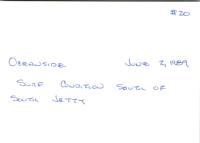 #20
OCEANSIDE JUNE 7, 1989
SURF CONDITION SOUTH OF
SOUTH JETTY